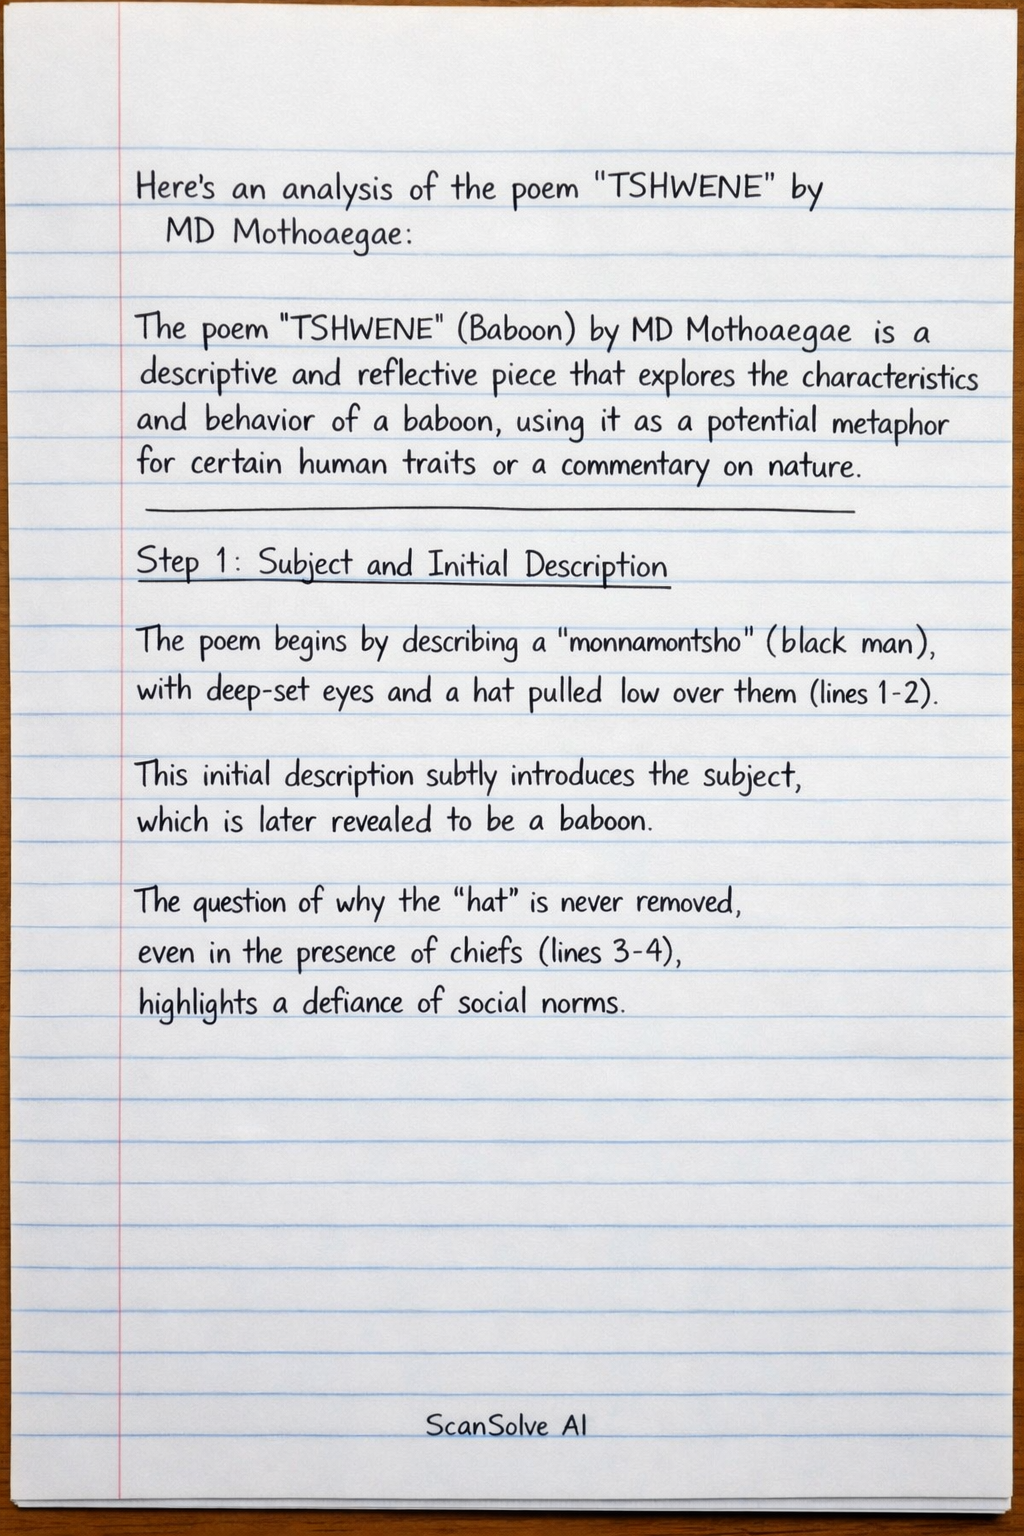 Here's an analysis of the poem "TSHWENE" by
MD Mothoaegae:
The poem "TSHWENE" (Baboon) by MD Mothoaegae is a
descriptive and reflective piece that explores the characteristics
and behavior of a baboon, using it as a potential metaphor
for certain human traits or a commentary on nature.
Step 1: Subject and Initial Description
The poem begins by describing a "monnamontsho" (black man),
with deep-set eyes and a hat pulled low over them (lines 1-2).
This initial description subtly introduces the subject,
which is later revealed to be a baboon.
The question of why the "hat" is never removed,
even in the presence of chiefs (lines 3-4),
highlights a defiance of social norms.
ScanSolve AI